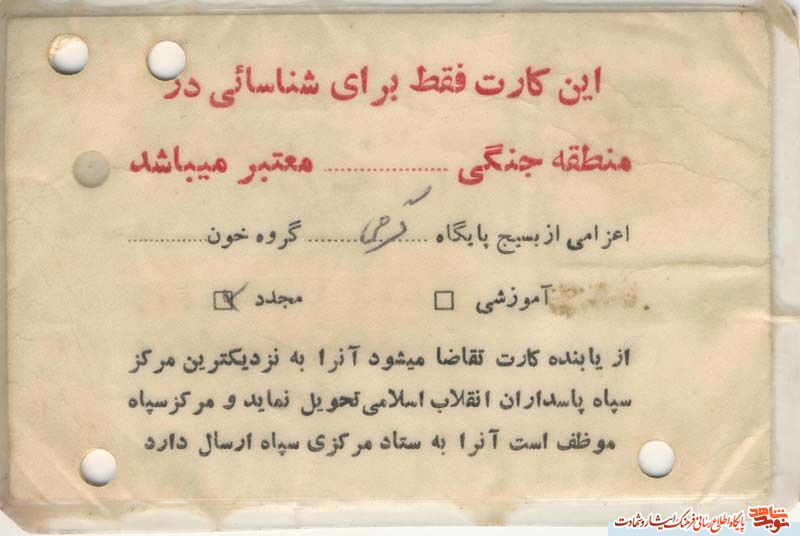 این کارت فقط برای شناسائی در
منطقه جنگی .................... معتبر میباشد
اعزامی از بسیج پایگاه ........ کرجی ........ گروه خون ............
آموزشی □ مجدد ☑
از یابنده کارت تقاضا میشود آنرا به نزدیکترین مرکز
سپاه پاسداران انقلاب اسلامی تحویل نماید و مرکز سپاه
موظف است آنرا به ستاد مرکزی سپاه ارسال دارد
نوید شاهد پایگاه اطلاع رسانی فرهنگ ایثار و شهادت